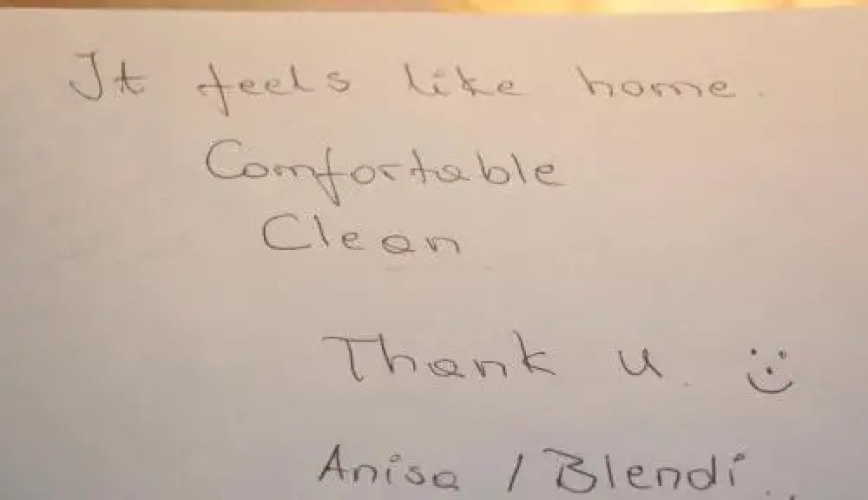 It feels like home.
Comfortable
Clean
Thank u. :)
Anisa / Blendi..